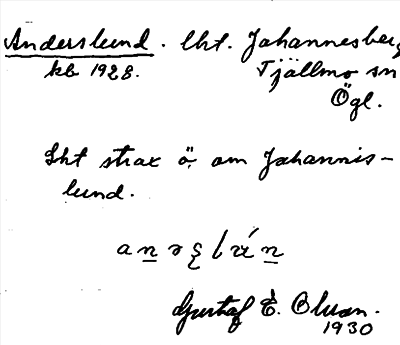 Anderslund. lht. Johannesberg
kb 1928. Tjällmo sn
Ögl.
Lht strax ö, om Johannis-
lund.
Gustaf E. Olsson.
1930